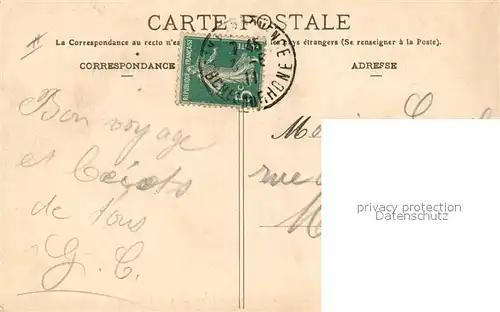 CARTE POSTALE
La Correspondance au recto n'es pays étrangers (Se renseigner à la Poste).
CORRESPONDANCE
ADRESSE
RÉPUBLIQUE FRANÇAISE
5c
DU-RHONE
Bon voyage
et
de tous
G. C.
rue
privacy protection
Datenschutz